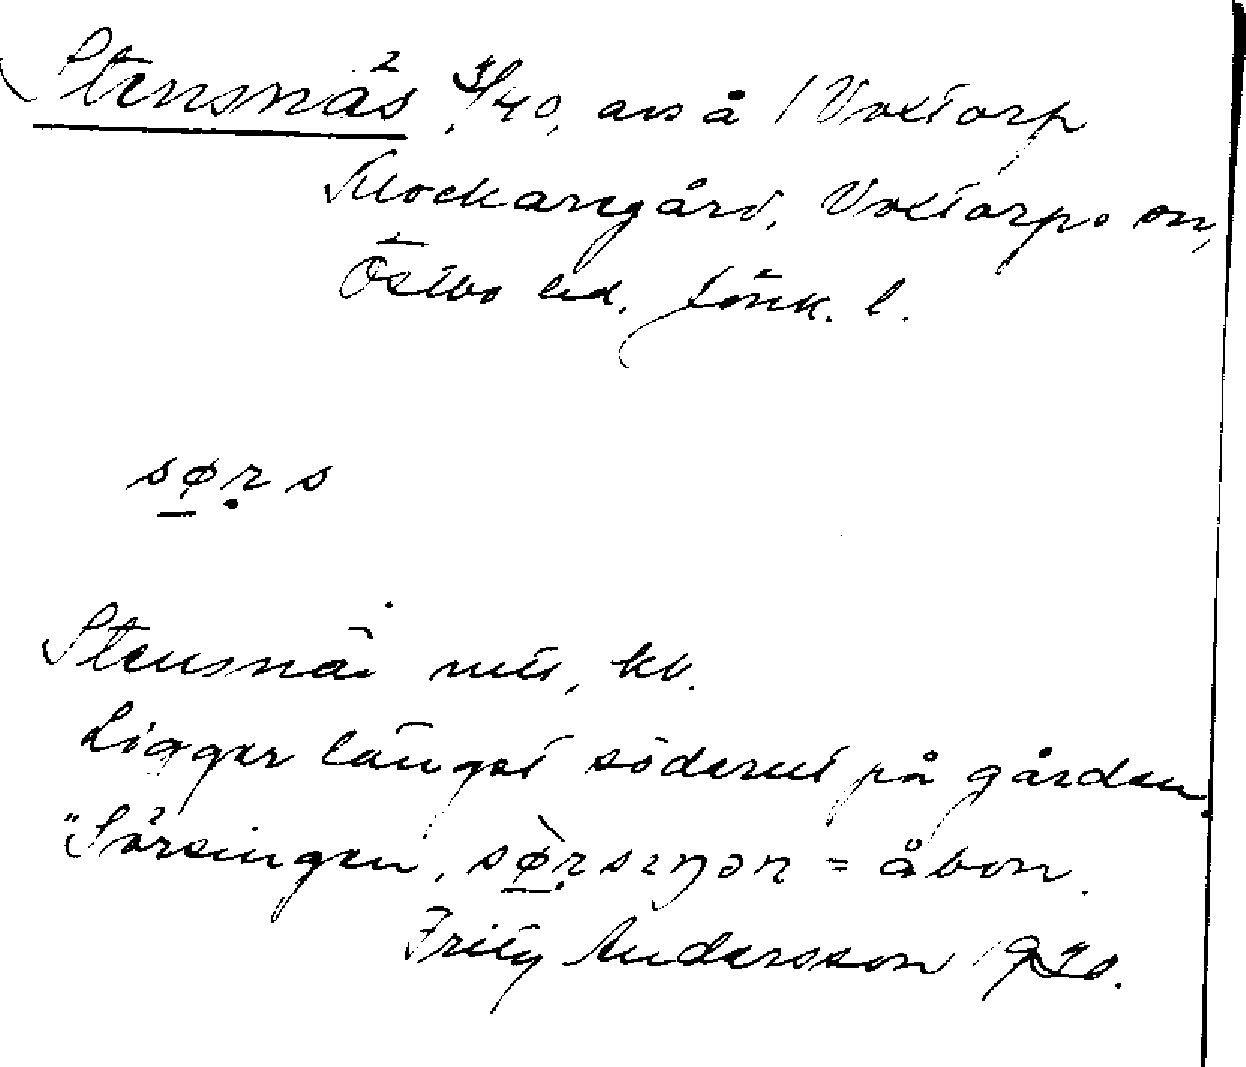 Stensnäs 1/40, avs å 1 Voxtorp
Klockaregård, Voxtorps sn,
Östbo hd. Jönk. l.
sø̱ṛs
Stensnäs nils, kv.
Ligger längst söderut på gården.
"Sörsingen, sø̱̀ṛsıŋən = åbon.
Frity Andersson 1930.